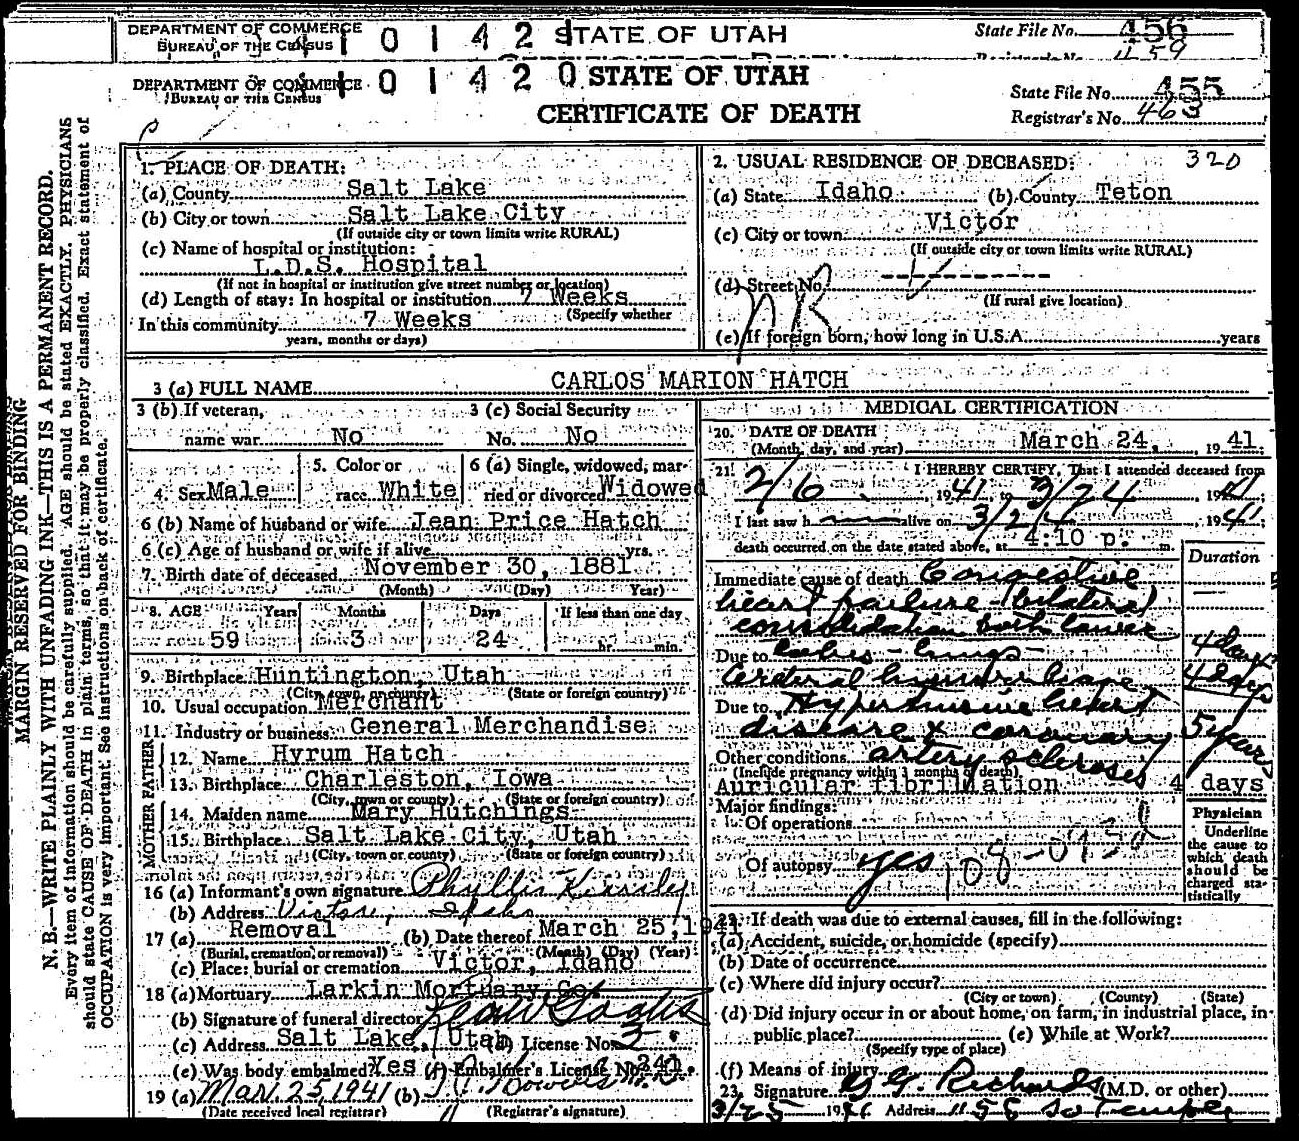 DEPARTMENT OF COMMERCE
BUREAU OF THE CENSUS
1 1 0 1 4 2
STATE OF UTAH
State File No. 456
459
DEPARTMENT OF COMMERCE
BUREAU OF THE CENSUS
1 1 0 1 4 2 0
STATE OF UTAH
CERTIFICATE OF DEATH
State File No. 455
Registrar's No. 463
MARGIN RESERVED FOR BINDING
N. B.—WRITE PLAINLY WITH UNFADING INK—THIS IS A PERMANENT RECORD.
Every item of information should be carefully supplied. AGE should be stated EXACTLY. PHYSICIANS
should state CAUSE OF DEATH in plain terms, so that it may be properly classified. Exact statement of
OCCUPATION is very important. See instructions on back of certificate.
1. PLACE OF DEATH:
(a) County Salt Lake
(b) City or town Salt Lake City
(If outside city or town limits write RURAL)
(c) Name of hospital or institution:
L.D.S. Hospital
(If not in hospital or institution give street number or location)
(d) Length of stay: In hospital or institution 7 Weeks
(Specify whether
In this community 7 Weeks
years, months or days)
2. USUAL RESIDENCE OF DECEASED: 320
(a) State Idaho (b) County Teton
(c) City or town Victor
(If outside city or town limits write RURAL)
(d) Street No. -----------
(If rural give location)
NR
(e) If foreign born, how long in U.S.A. years
3 (a) FULL NAME CARLOS MARION HATCH
3 (b) If veteran,
name war No
3 (c) Social Security
No. No
4. Sex Male
5. Color or
race White
6 (a) Single, widowed, mar-
ried or divorced Widowed
6 (b) Name of husband or wife Jean Price Hatch
6 (c) Age of husband or wife if alive yrs.
7. Birth date of deceased November 30, 1881
(Month) (Day) Year)
8. AGE Years Months Days If less than one day
59 3 24 hr. min.
9. Birthplace Huntington, Utah
(City, town, or county) (State or foreign country)
10. Usual occupation Merchant
11. Industry or business General Merchandise
FATHER
12. Name Hyrum Hatch
13. Birthplace Charleston, Iowa
(City, town or county) (State or foreign country)
MOTHER
14. Maiden name Mary Hutchings
15. Birthplace Salt Lake City, Utah
(City, town or county) (State or foreign country)
16 (a) Informant's own signature Phyllis
(b) Address Victor, Idaho
17 (a) Removal (b) Date thereof March 25, 1941
(Burial, cremation, or removal) (Month) (Day) (Year)
(c) Place: burial or cremation Victor, Idaho
18 (a) Mortuary Larkin Mortuary Co.
(b) Signature of funeral director
(c) Address Salt Lake, Utah (d) License No. 3
(e) Was body embalmed? Yes (f) Embalmer's License No. 241.
19 (a) Mar. 25, 1941 (b)
(Date received local registrar) (Registrar's signature)
MEDICAL CERTIFICATION
20. DATE OF DEATH
(Month, day, and year) March 24, 1941.
21. I HEREBY CERTIFY, That I attended deceased from
2/6, 1941 to 3/24, 1941;
I last saw h alive on 3/24, 1941;
death occurred on the date stated above, at 4:10 p. m.
Duration
Immediate cause of death Congestive
heart failure (bilateral
consolidation both lower
Due to lobes - lungs - 4 days
Cerebral hemorrhage 4 days
Due to Hypertensive heart
disease & coronary 5 years
Other conditions artery sclerosis
(Include pregnancy within 3 months of death)
Auricular fibrillation 4 days
Major findings:
Of operations
Of autopsy yes
Physician
Underline
the cause to
which death
should be
charged sta-
tistically
22. If death was due to external causes, fill in the following:
(a) Accident, suicide, or homicide (specify)
(b) Date of occurrence
(c) Where did injury occur?
(City or town) (County) (State)
(d) Did injury occur in or about home, on farm, in industrial place, in
public place? (e) While at Work?
(Specify type of place)
(f) Means of injury
23. Signature G. G. Richards (M.D. or other)
3/25 1941 Address 1158 So Temple